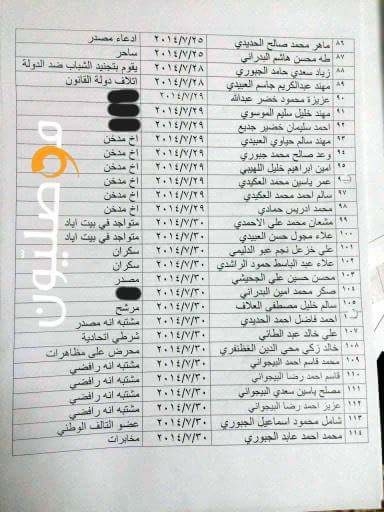 ٨٦ ماهر محمد صالح الحديدي ٢٠١٤/٧/٢٥ ادعاء مصدر
٨٧ طه محسن هاشم البدراني ٢٠١٤/٧/٢٥ ساحر
٨٨ زياد سعدي حامد الجبوري ٢٠١٤/٧/٢٨ يقوم بتجنيد الشباب ضد الدولة
٨٩ مهند عبدالكريم جاسم العبيدي ٢٠١٤/٧/٢٨ ائتلاف دولة القانون
٩٠ عزيزة محمود خضر عبدالله ٢٠١٤/٧/٢٩
٩١ مهند خليل سليم الموسوي ٢٠١٤/٧/٢٩
٩٢ احمد سليمان خضير جديع ٢٠١٤/٧/٢٩
٩٣ مهند سالم حياوي العبيدي ٢٠١٤/٧/٢٩ اخ مدخن
٩٤ وعد صالح محمد جبوري ٢٠١٤/٧/٢٩ اخ مدخن
٩٥ امين ابراهيم خليل اللهيبي ٢٠١٤/٧/٢٩ اخ مدخن
عمر ياسين محمد العكيدي ٢٠١٤/٧/٢٩ اخ مدخن
٩٧ سالم احمد محمد العكيدي ٢٠١٤/٧/٢٩ اخ مدخن
٩٨ محمد ادريس حمادي ٢٠١٤/٧/٢٩ اخ مدخن
٩٩ مشعان محمد علي الاحمدي ٢٠١٤/٧/٣٠ متواجد في بيت اياد
١٠٠ علاء مجول حسن العبيدي ٢٠١٤/٧/٣٠ متواجد في بيت اياد
١٠١ علي خزعل نجم عبو الدليمي ٢٠١٤/٧/٣٠ سكران
١٠٢ علاء عبد الباسط حمود الراشدي ٢٠١٤/٧/٣٠ سكران
١٠٣ محسن حسين علي الجحيشي ٢٠١٤/٧/٣٠ مصدر
١٠٤ صكر محمد امين البدراني ٢٠١٤/٧/٣٠
١٠٥ سالم خليل مصطفى العلاف ٢٠١٤/٧/٣٠ مرشح
احمد فاضل احمد الحديدي ٢٠١٤/٧/٣٠ مشتبه انه مصدر
١٠٧ علي خالد عبد الطائي ٢٠١٤/٧/٣٠ شرطي اتحادية
١٠٨ خالد زكي محي الدين الغظنفري ٢٠١٤/٧/٣٠ محرض على مظاهرات
١٠٩ محمد قاسم احمد البيجواني ٢٠١٤/٧/٣٠ مشتبه انه رافضي
١١٠ قاسم احمد رضا البيجواني ٢٠١٤/٧/٣٠ مشتبه انه رافضي
١١١ مصلح ياسين سعدي البيجواني ٢٠١٤/٧/٣٠ مشتبه انه رافضي
١١٢ عزيز احمد رضا البيجواني ٢٠١٤/٧/٣٠ مشتبه انه رافضي
١١٣ شامل محمود اسماعيل الجبوري ٢٠١٤/٧/٣٠ عضو التالف الوطني
١١٤ محمد احمد عابد الجبوري ٢٠١٤/٧/٣٠ مخابرات
موصليون